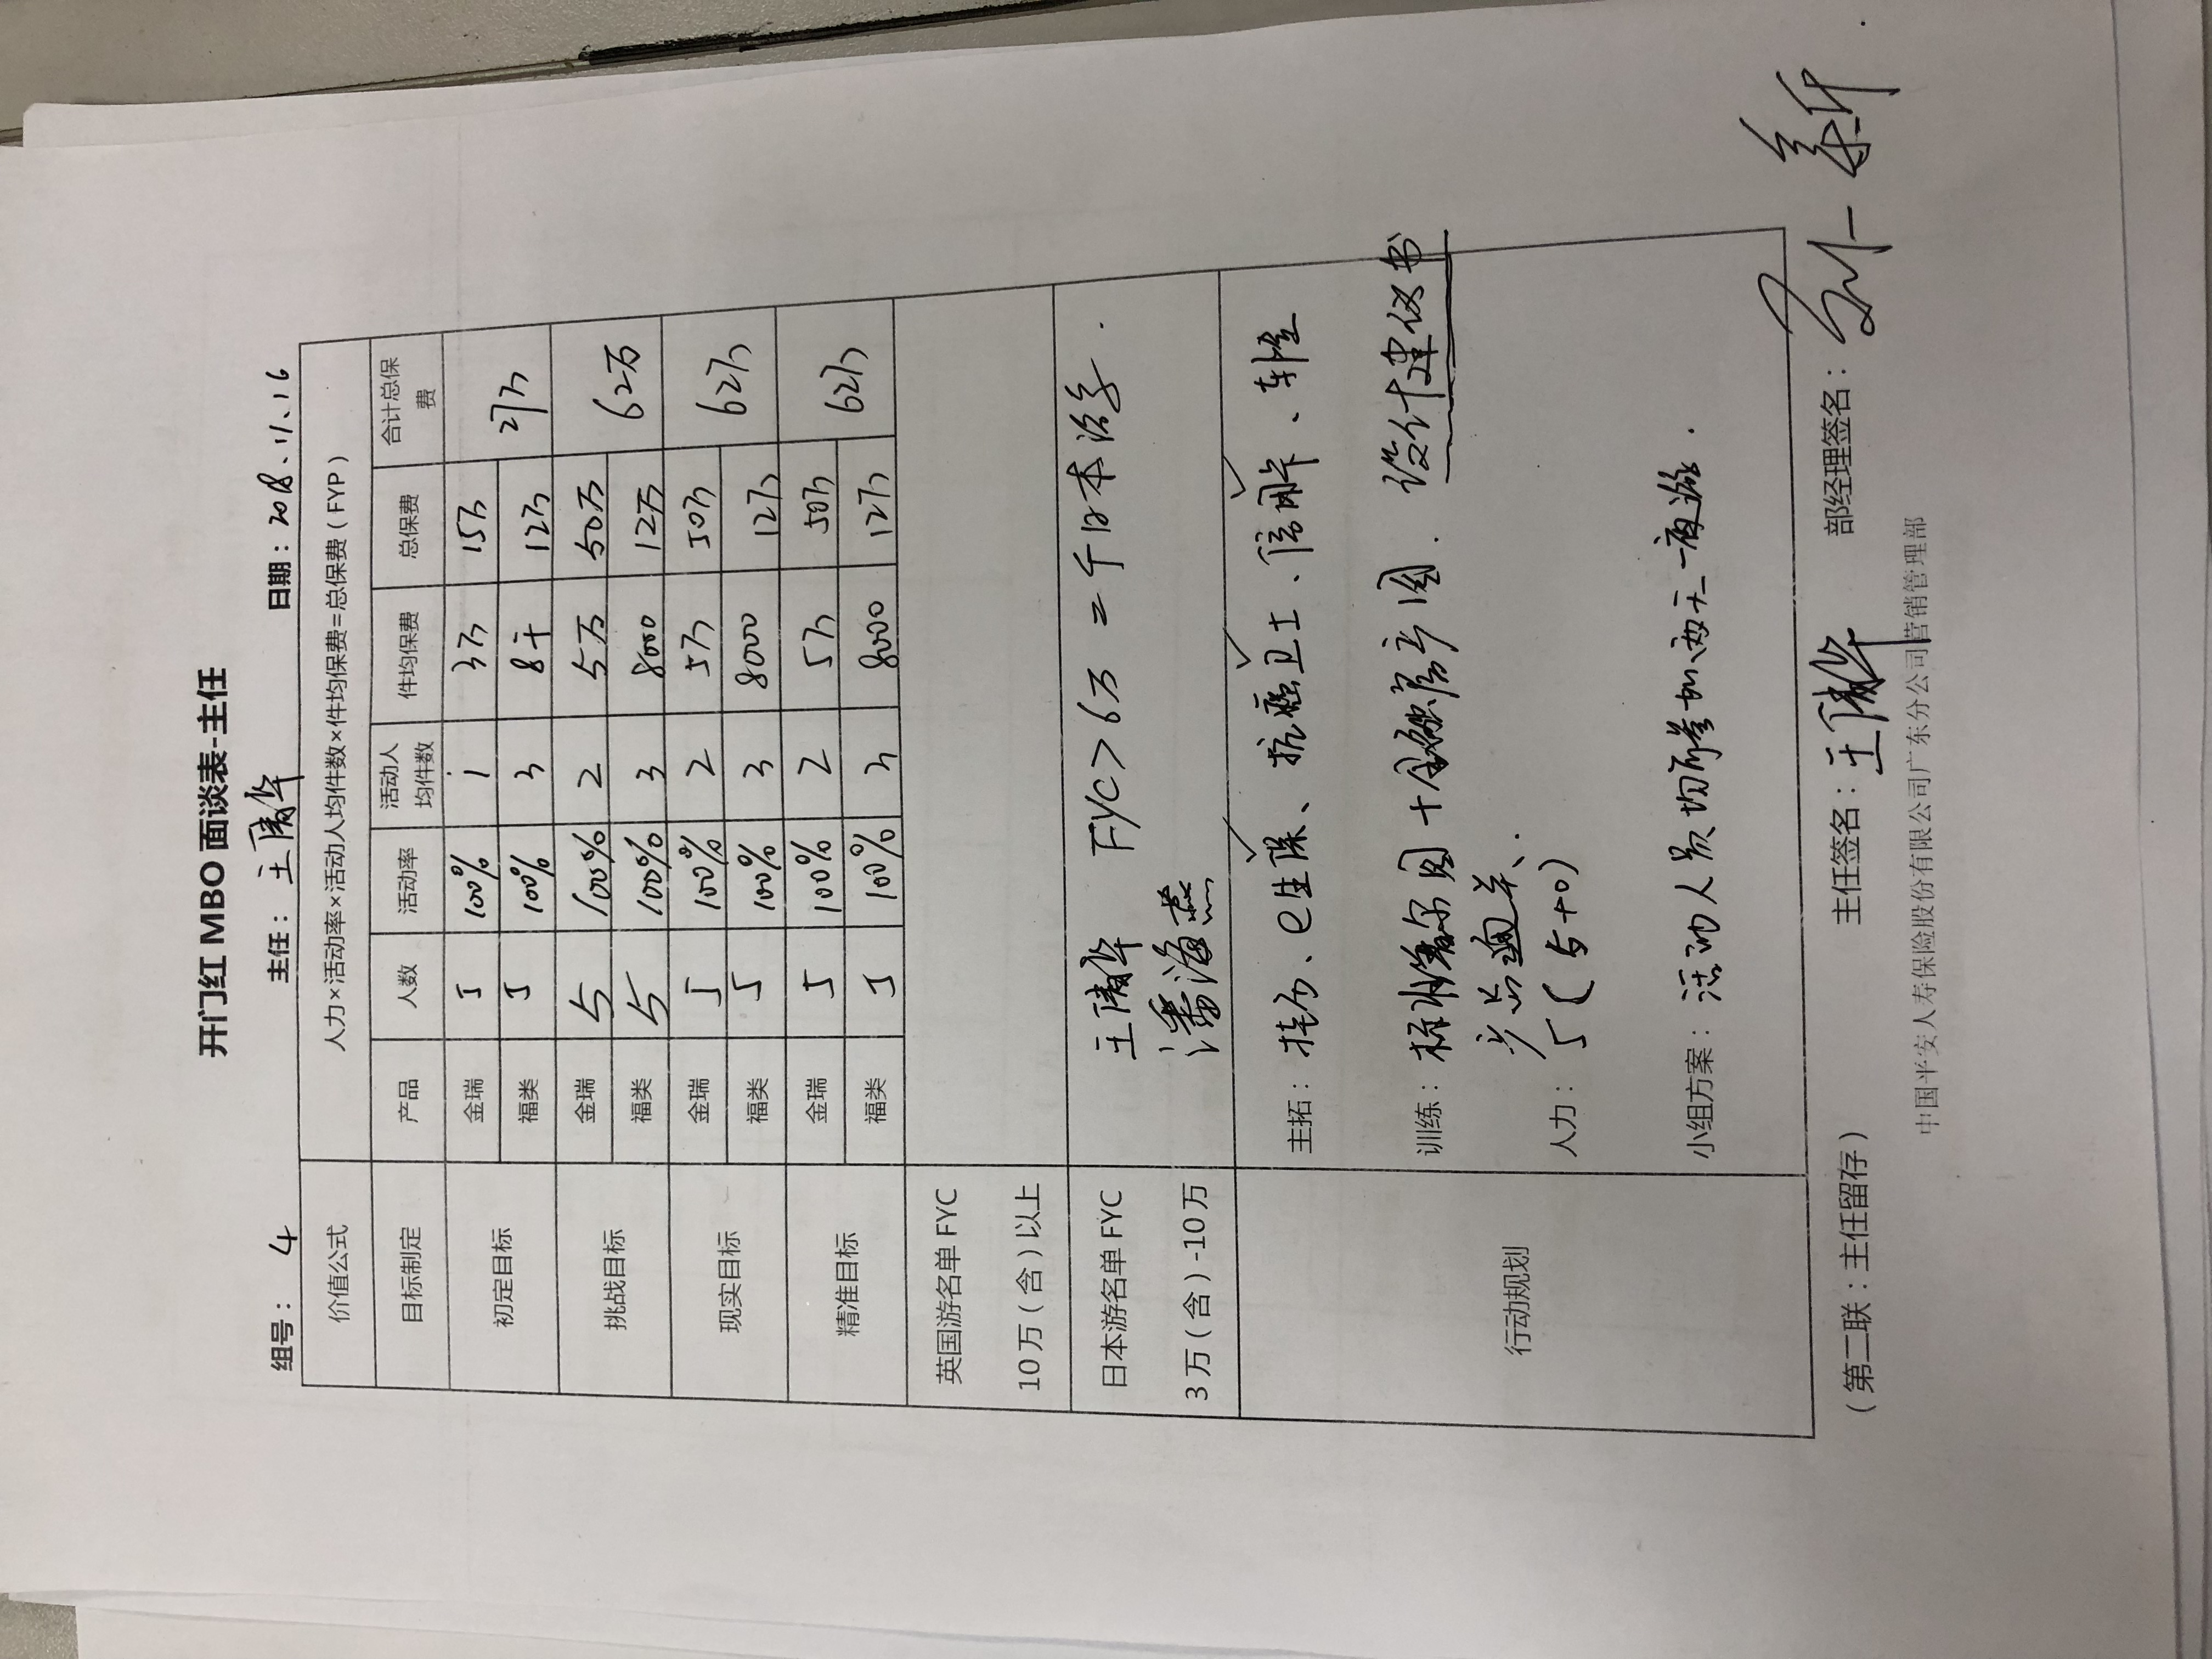 开门红 MBO 面谈表-主任
组号： 4 主任： 王清华 日期：2018.11.16
价值公式 人力×活动率×活动人均件数×件均保费=总保费（FYP）
目标制定 产品 人数 活动率 活动人均件数 件均保费 总保费 合计总保费
初定目标 金瑞 5 100% 1 3万 15万 27万
福类 5 100% 3 8千 12万
挑战目标 金瑞 5 100% 2 5万 50万 62万
福类 5 100% 3 8000 12万
现实目标 金瑞 5 100% 2 5万 50万 62万
福类 5 100% 3 8000 12万
精准目标 金瑞 5 100% 2 5万 50万 62万
福类 5 100% 3 8000 12万
英国游名单 FYC
10万（含）以上
日本游名单 FYC
3万（含）-10万
王清华 FYC>6万 = 千日本游学.
潘海燕
行动规划
主拓： e生保、抗癌卫士、信用卡、车险
训练： 标准普尔图+金融房产图. 设计建议书
产品通关、
人力： 5（5+0）
小组方案： 活动人员均可参加两天一夜游.
（第二联：主任留存） 主任签名：王清华 部经理签名：
中国平安人寿保险股份有限公司广东分公司营销管理部